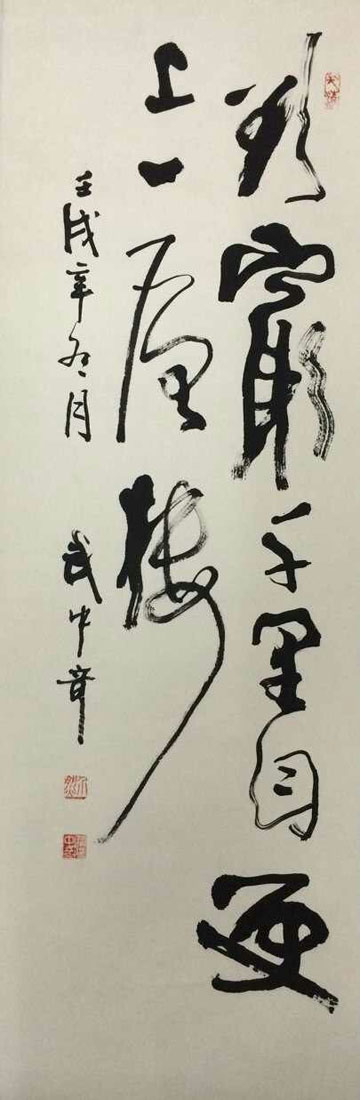 欲窮千里目更
上一層樓
壬戌年冬月 武中奇